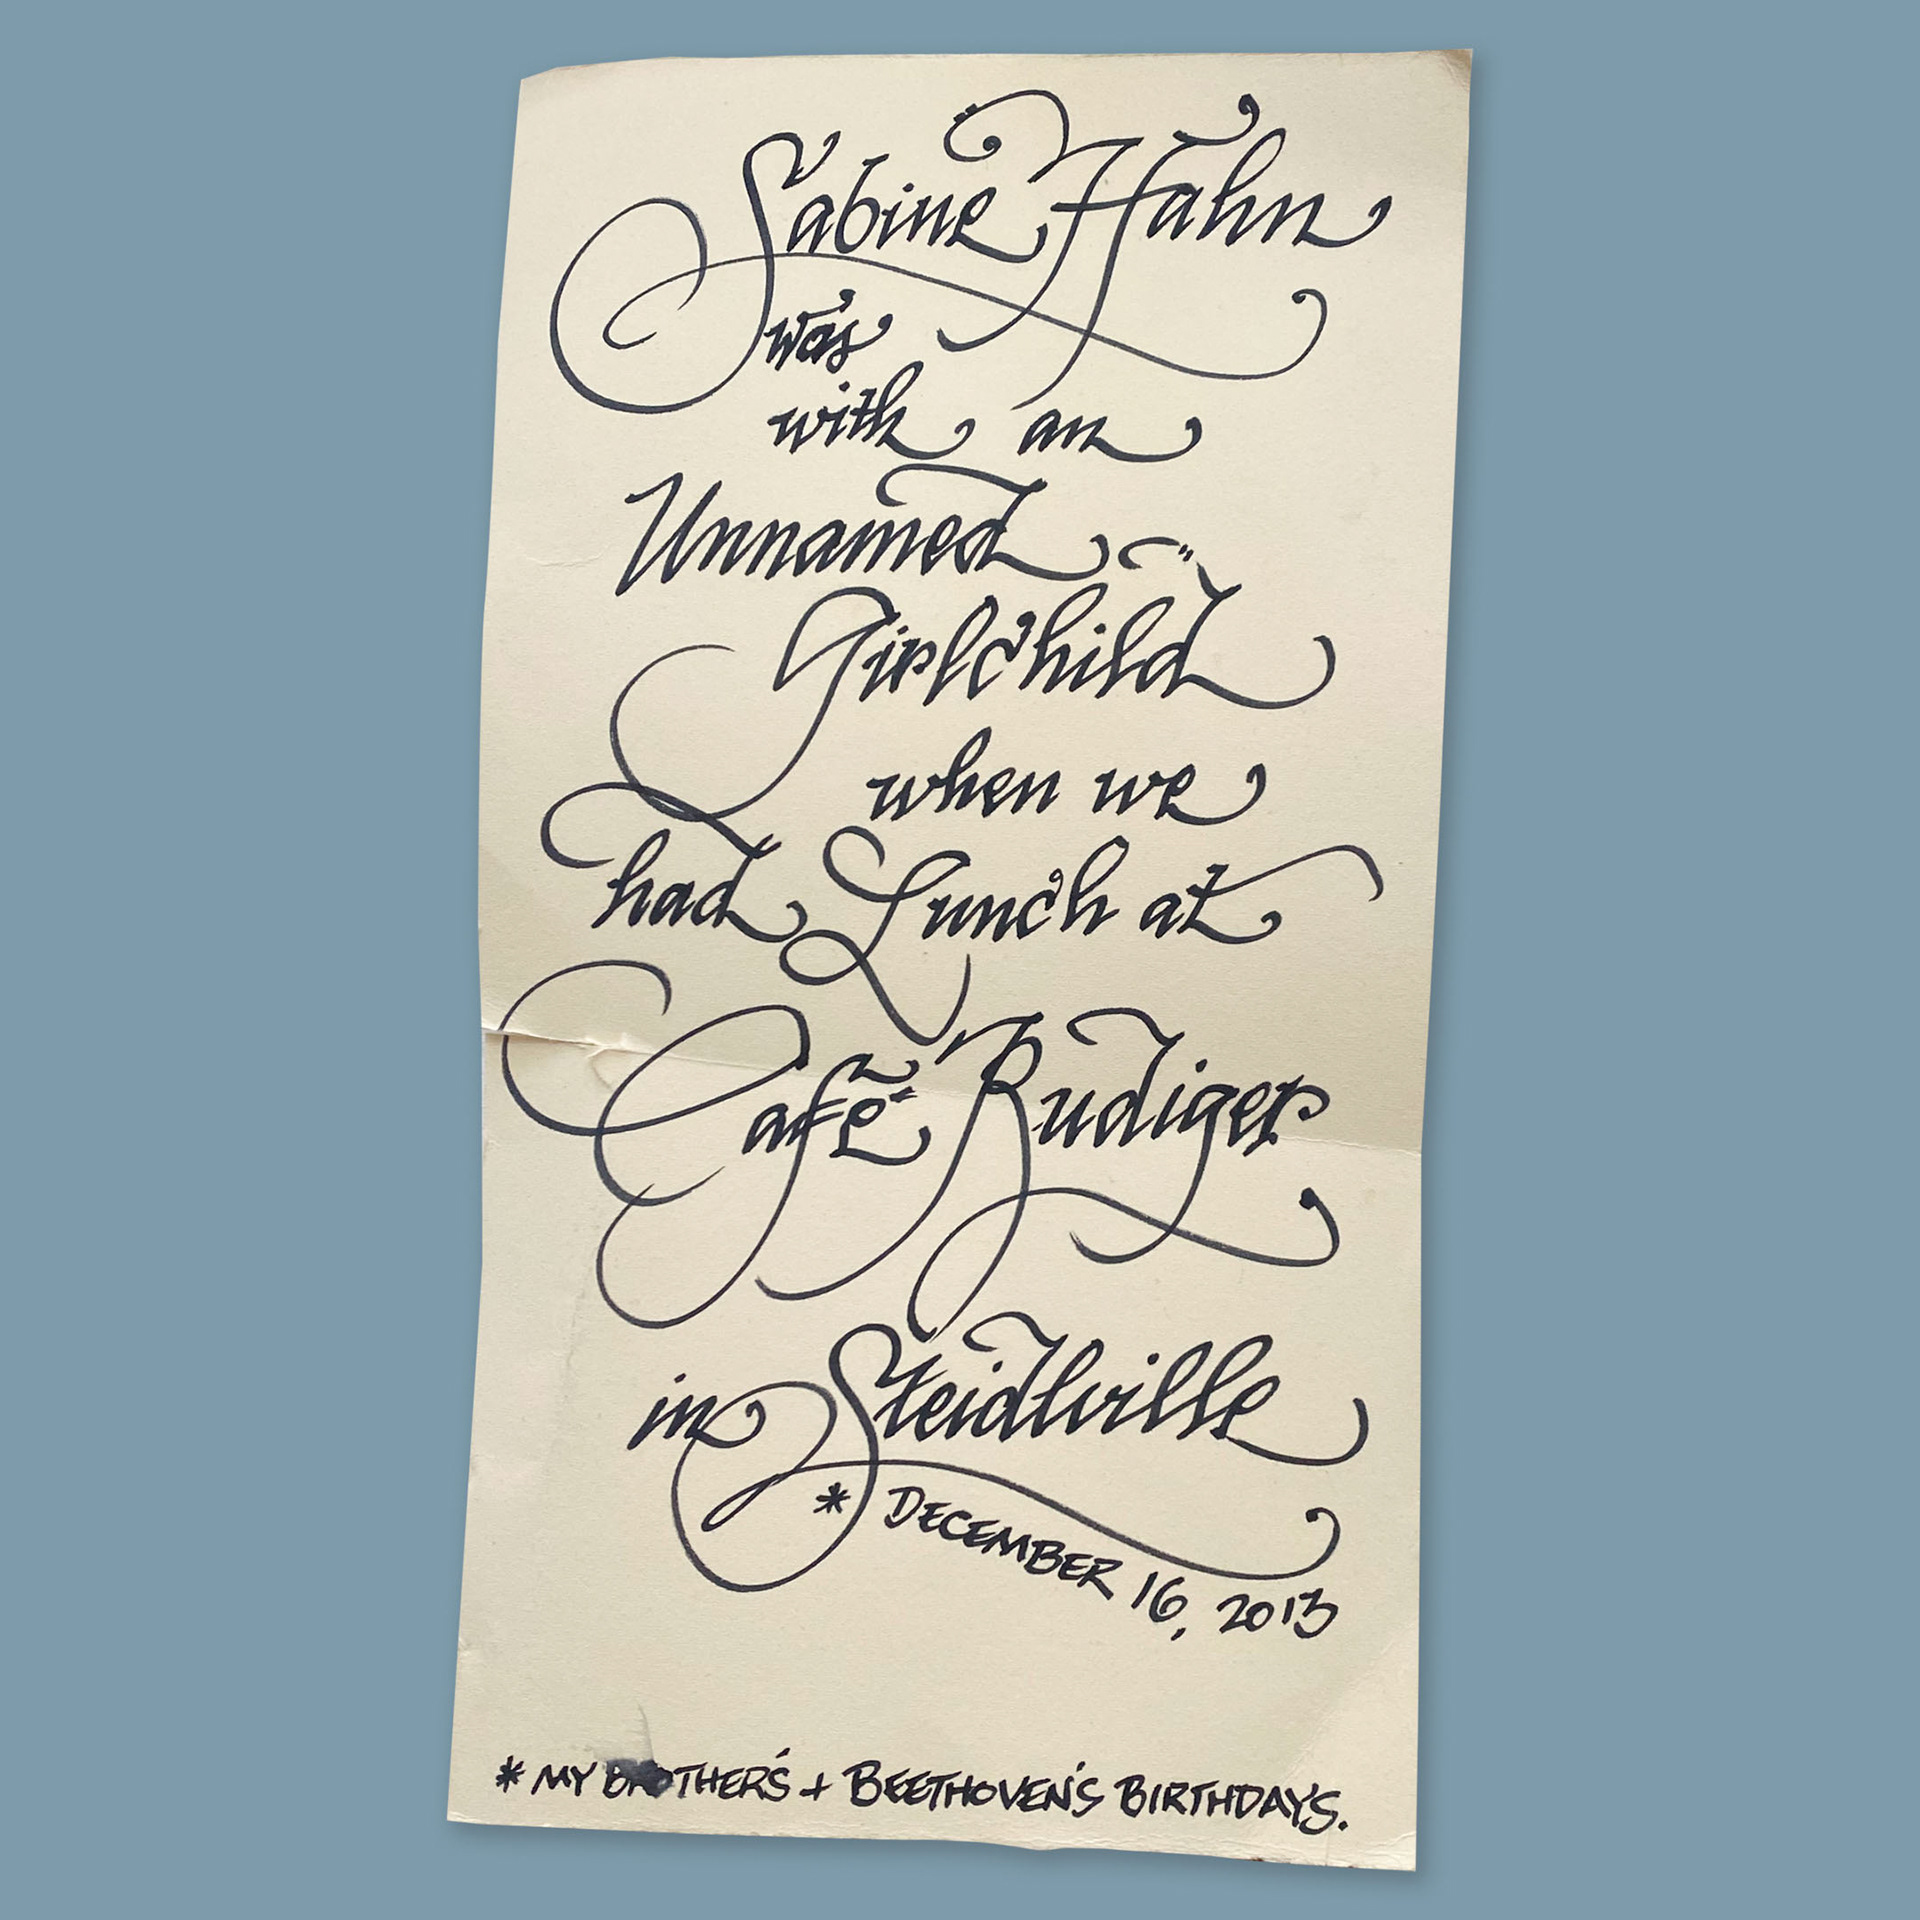 Sabine Hahn
was
with an
Unnamed
Girlchild
when we
had Lunch at
Café Rudiger
in Steidlville
* DECEMBER 16, 2013
* MY BROTHER'S + BEETHOVEN'S BIRTHDAYS.